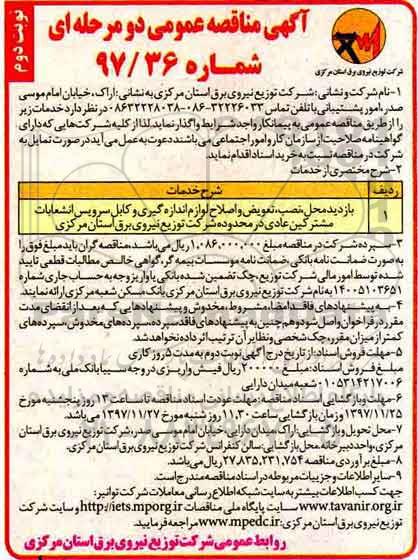 نوبت دوم
آگهی مناقصه عمومی دو مرحله ای
شماره ۹۷/۳۶
شرکت توزیع نیروی برق استان مرکزی
۱-نام شرکت و نشانی: شرکت توزیع نیروی برق استان مرکزی به نشانی: اراک، خیابان امام موسی
صدر، امور پشتیبانی با تلفن تماس ۳۲۲۲۶۰۳۳-۰۸۶ - ۰۸۶۳۲۲۲۸۰۳۸ در نظر دارد خدمات زیر
را از طریق مناقصه عمومی به پیمانکار واجد شرایط واگذار نماید. لذا از کلیه شرکت هایی که دارای
گواهینامه صلاحیت از سازمان کار و امور اجتماعی می باشند دعوت به عمل می آید در صورت تمایل به
شرکت در مناقصه نسبت به خرید اسناد اقدام نماید
۲-شرح مختصری از خدمات
ردیف شرح خدمات
۱ بازدید محل، نصب، تعویض و اصلاح لوازم اندازه گیری و کابل سرویس انشعابات
مشترکین عادی در محدوده شرکت توزیع نیروی برق استان مرکزی
۳-سپرده شرکت در مناقصه مبلغ ۱،۰۸۶،۰۰۰،۰۰۰ ریال می باشد، مناقصه گران باید مبلغ فوق را
به صورت ضمانت نامه بانکی، ضمانت نامه موسسات بیمه گر، گواهی خالص مطالبات قطعی تایید
شده توسط امور مالی شرکت توزیع، چک تضمین شده بانکی یا واریز وجه به حساب جاری شماره
۱۴۰۰۵۱۰۳۶۵۱ به نام شرکت توزیع نیروی برق استان مرکزی بانک مسکن شعبه مرکزی ارائه نمایند.
۴- به پیشنهادهای فاقد امضا، مشروط، مخدوش و پیشنهادهایی که بعد از انقضای مدت
مقرر در فراخوان واصل شود و هم چنین به پیشنهادهای فاقد سپرده، سپرده های مخدوش، سپرده های
کمتر از میزان مقرر، چک شخصی و نظایر آن ترتیب اثر داده نخواهد شد.
۵-مهلت فروش اسناد: از تاریخ درج آگهی نوبت دوم به مدت ۵ روز کاری
مبلغ فروش اسناد: مبلغ ۲۰۰۰۰۰ ریال فیش واریزی در وجه سیبا بانک ملی به شماره
۰۱۰۵۳۱۴۲۱۷۰۰۶ شعبه میدان دارایی
۶-مهلت و بازگشایی اسناد مناقصه: مهلت عودت اسناد مناقصه تا ساعت ۱۳ روز پنجشنبه مورخ
۱۳۹۷/۱۱/۲۵ و زمان بازگشایی ساعت ۱۱،۳۰ روز شنبه مورخ ۱۳۹۷/۱۱/۲۷ می باشد.
۷-محل تحویل و بازگشایی: اراک، میدان دارایی، خیابان امام موسی صدر، شرکت توزیع نیروی برق استان
مرکزی، واحد دبیرخانه. محل بازگشایی: سالن کنفرانس شرکت توزیع نیروی برق استان مرکزی.
۸-مبلغ برآوردی مناقصه ۲۷،۸۳۵،۲۳۱،۷۵۴ ریال می باشد.
۹-سایر اطلاعات و جزییات مربوطه در اسناد مناقصه مندرج است.
جهت کسب اطلاعات بیشتر به سایت شبکه اطلاع رسانی معاملات شرکت توانیر:
www.tavanir.org.ir سایت پایگاه ملی مناقصات http://iets.mporg.ir و سایت شرکت
توزیع نیروی برق استان مرکزی: www.mpedc.ir مراجعه فرمایید.
روابط عمومی شرکت توزیع نیروی برق استان مرکزی